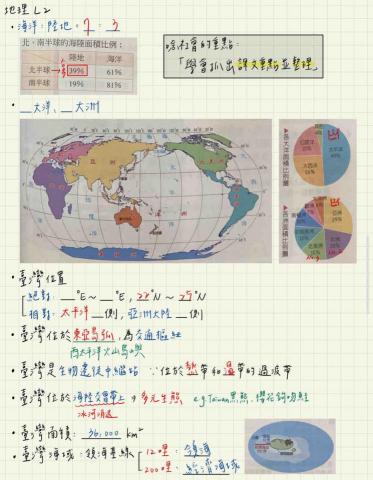 地理 L2
• 海洋:陸地 = 7 : 3
北、南半球的海陸面積比例:
陸地 海洋
北半球 39% 61%
南半球 19% 81%
社會的重點:
「學會抓出課文重點並整理」
• __大洋、__大洲
各大洋面積比例圖
太平洋
大西洋
印度洋
各洲面積比例圖
亞洲
• 臺灣位置
絕對: __°E ~ __°E, 22°N ~ 25°N
相對: 太平洋__側, 亞洲大陸__側
• 臺灣位於東亞島弧, 為交通樞紐
西太平洋火山島
• 臺灣是生物遷徙中繼站 ∵位於熱帶和溫帶的過渡帶
• 臺灣位於海陸交界上 → 多元生態 e.g. Taiwan黑熊, 櫻花鉤吻鮭
冰河消退
• 臺灣面積: 36,000 km²
• 臺灣海域: 領海基線 12浬: 領海
200浬: 經濟海域